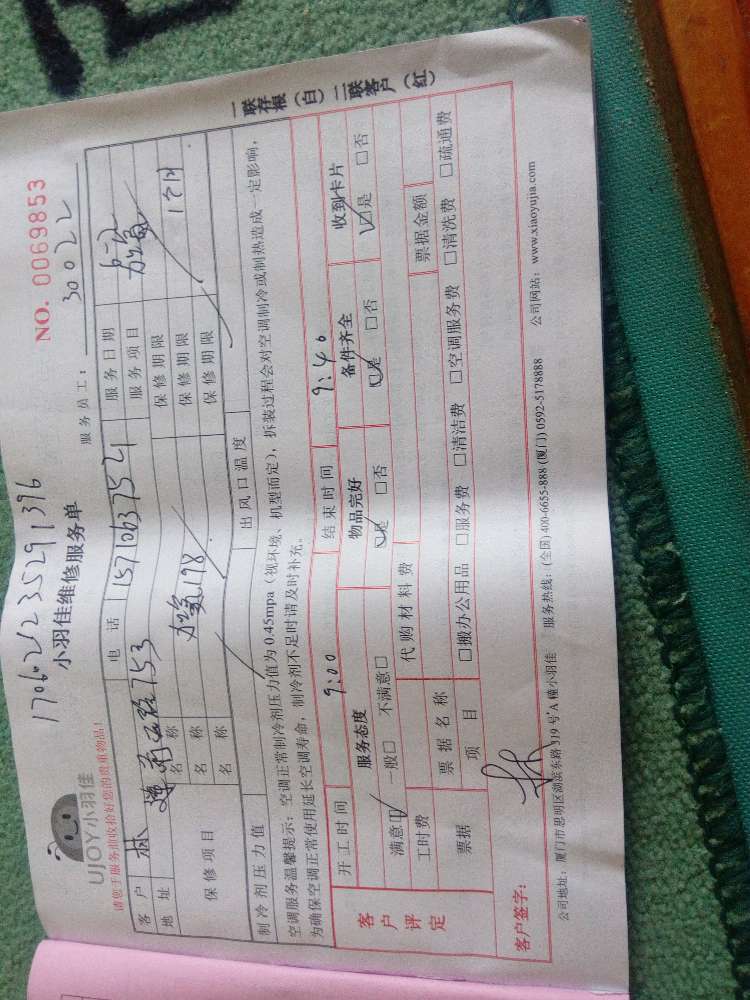 1706021235291396
UJOY小羽佳
小羽佳维修服务单
NO. 0069853
请您于服务前收拾好您的贵重物品!
服务员工: 30022
客户 林 电话 15710637521 服务日期 6-2
地址 莲前西路753 服务项目 加氟
保修项目 名称 加氟178 保修期限 1个月
名称 保修期限
名称 保修期限
制冷剂压力值 出风口温度
空调服务温馨提示:空调正常制冷剂压力值为0.45mpa(视环境、机型而定),拆装过程会对空调制冷或制热造成一定影响,
为确保空调正常使用延长空调寿命,制冷剂不足时请及时补充。
客户评定
开工时间 9:00 结束时间 9:40
服务态度 物品完好 备件齐全 收到卡片
满意☑ 一般□ 不满意□ ☑是 □否 ☑是 □否 ☑是 □否
工时费 代购材料费
票据 票据名称 票据金额
项目 □搬办公用品 □服务费 □清洁费 □空调服务费 □清洗费 □疏通费
客户签字: 林
公司地址:厦门市思明区湖滨东路319号A幢小羽佳 服务热线:(全国)400-6655-888 (厦门)0592-5178888 公司网站:www.xiaoyujia.com
一联存根(白)二联客户(红)